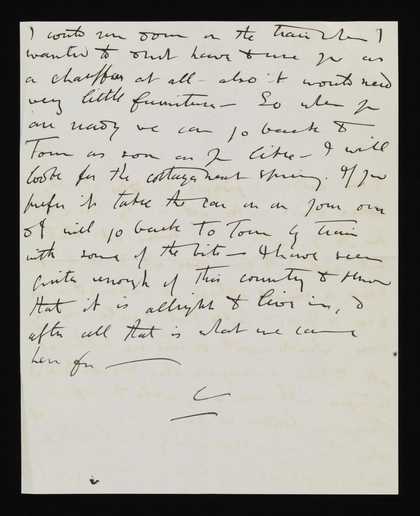 I could run down on the train when I
wanted to & not have to use you as
a chauffeur at all – also it would need
very little furniture – So when you
are ready we can go back to
Town as soon as you like – I will
look for the cottage next spring. If you
prefer to take the car on on your own
I will go back to Town by train
with some of the kits – I have seen
quite enough of this country to know
that it is allright to live in, &
after all that is what we came
here for —